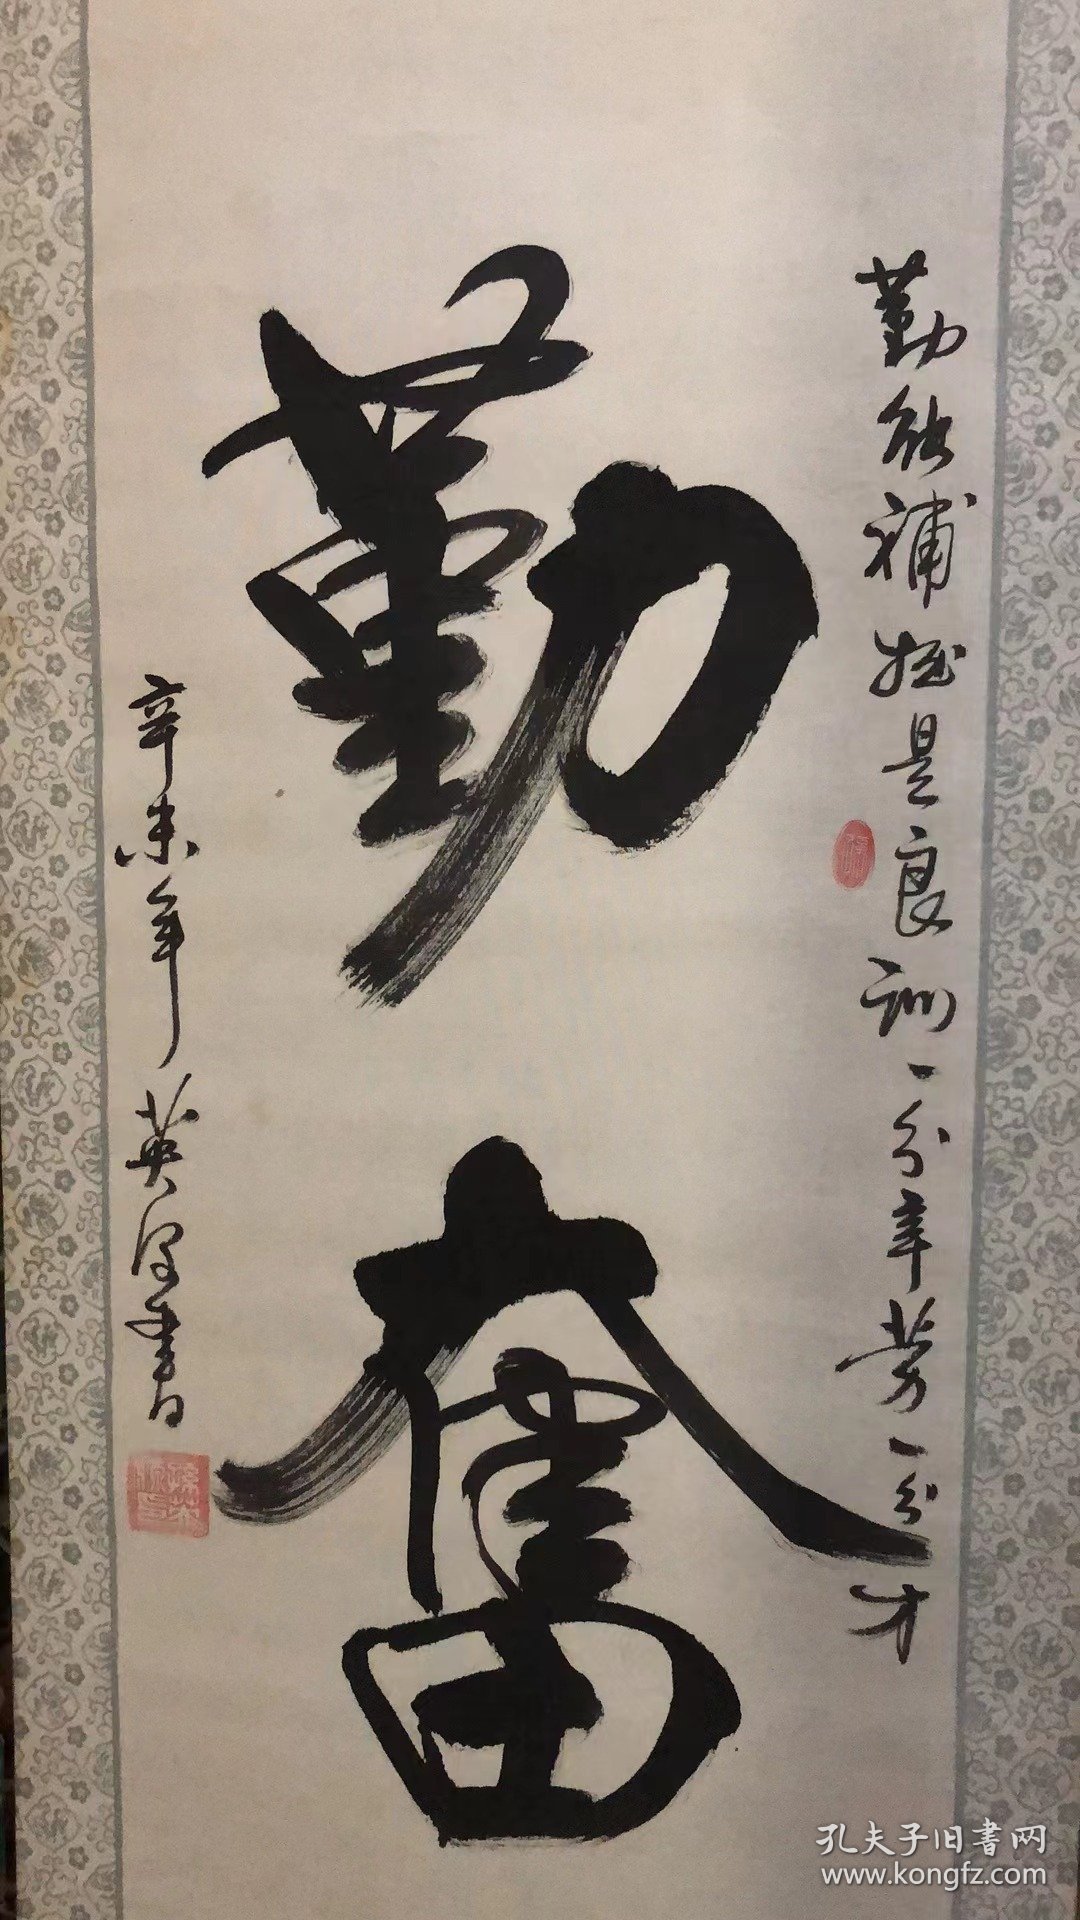 勤能補拙是良訓一分辛勞一分才
勤奮
辛未年英深書
孔夫子旧書网
www.kongfz.com